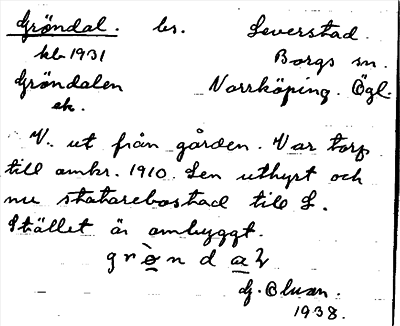 Gröndal. bs. Leverstad.
kb 1931 Borgs sn.
Gröndalen Norrköping. Ögl.
ek.
V. ut från gården. Var torp
till omkr. 1910. Sen uthyrt och
nu statarebostad till L.
Stället är ombyggt.
grö̀ndaɫ
G. Olsson.
1938.